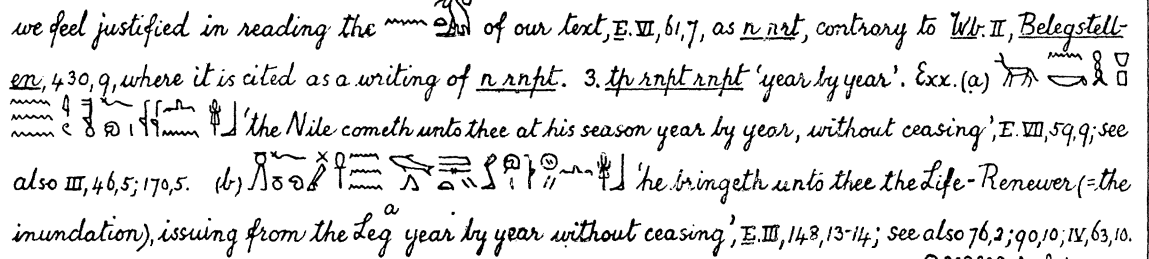 we feel justified in reading the of our text, E. VI, 61, 7, as n nrt, contrary to Wb. II, Belegstell-
en, 430, 9, where it is cited as a writing of n rnpt. 3. tp rnpt rnpt 'year by year'. Exx. (a)
'the Nile cometh unto thee at his season year by year, without ceasing', E. VII, 59, 9; see
also III, 46, 5; 170, 5. (b) 'he bringeth unto thee the Life-Renewer (= the
inundation), issuing from the Leg a year by year without ceasing', E. III, 148, 13-14; see also 76, 2; 90, 10; IV, 63, 10.